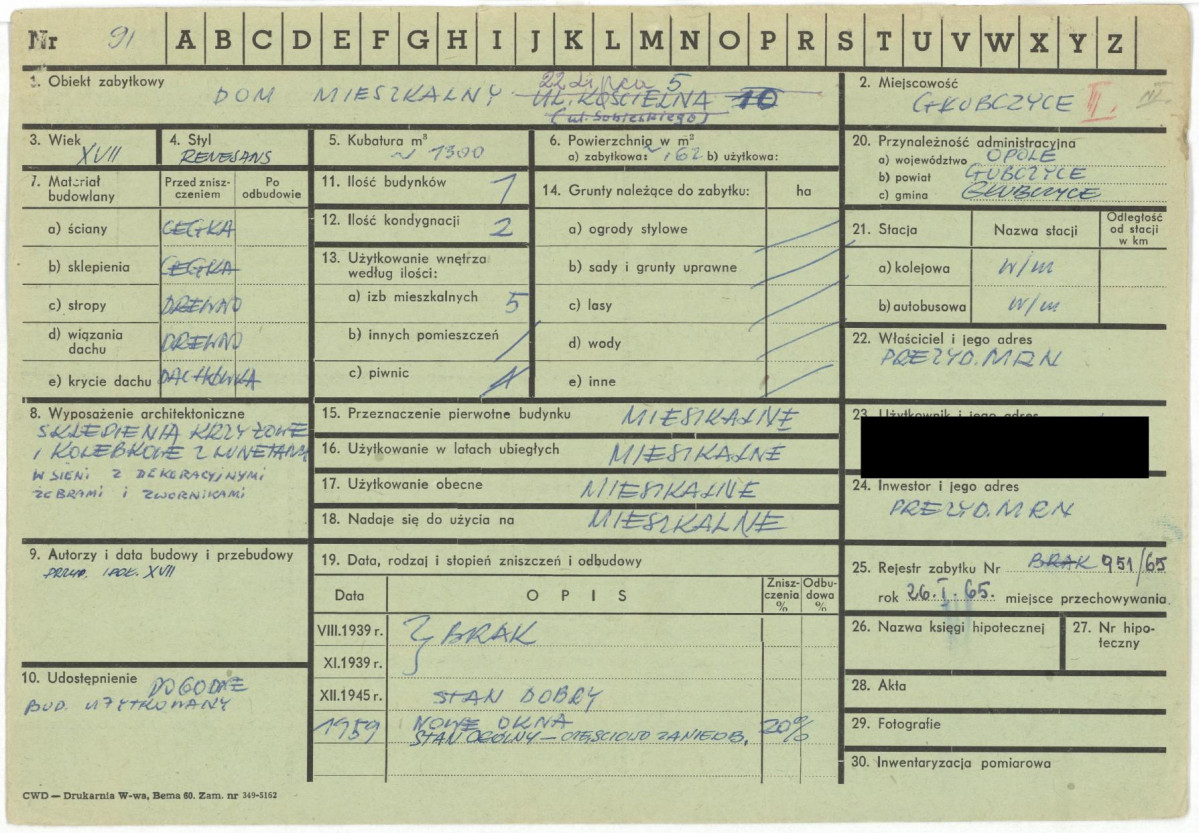 Nr 91 A B C D E F G H I J K L M N O P R S T U V W X Y Z
1. Obiekt zabytkowy
DOM MIESZKALNY
22 Lipca 5
UL. KOŚCIELNA 10
(ul. Sobieskiego)
2. Miejscowość
GŁUBCZYCE III
3. Wiek
XVII
4. Styl
RENESANS
5. Kubatura m³
~ 1300
6. Powierzchnia w m²
a) zabytkowa: ~ 162 b) użytkowa:
7. Materiał budowlany
Przed zniszczeniem
Po odbudowie
a) ściany CEGŁA
b) sklepienia CEGŁA
c) stropy DREWNO
d) wiązania dachu DREWNO
e) krycie dachu DACHÓWKA
11. Ilość budynków 1
12. Ilość kondygnacji 2
13. Użytkowanie wnętrza według ilości:
a) izb mieszkalnych 5
b) innych pomieszczeń /
c) piwnic 1
14. Grunty należące do zabytku: ha
a) ogrody stylowe
b) sady i grunty uprawne
c) lasy
d) wody
e) inne
20. Przynależność administracyjna
a) województwo OPOLE
b) powiat GUBCZYCE
c) gmina GŁUBCZYCE
21. Stacja
Nazwa stacji
Odległość od stacji w km
a) kolejowa w/m
b) autobusowa w/m
22. Właściciel i jego adres
PREZYD. MRN
8. Wyposażenie architektoniczne
SKLEPIENIA KRZYŻOWE
I KOLEBKOWE Z LUNETAMI
W SIENI Z DEKORACYJNYMI
ŻEBRAMI I ZWORNIKAMI
15. Przeznaczenie pierwotne budynku MIESZKALNE
16. Użytkowanie w latach ubiegłych MIESZKALNE
17. Użytkowanie obecne MIESZKALNE
18. Nadaje się do użycia na MIESZKALNE
23. Użytkownik i jego adres
24. Inwestor i jego adres
PREZYD. MRN
9. Autorzy i data budowy i przebudowy
I POŁ. XVII
19. Data, rodzaj i stopień zniszczeń i odbudowy
Data
OPIS
Zniszczenia %
Odbudowa %
VIII.1939 r. BRAK
XI.1939 r.
XII.1945 r. STAN DOBRY
1959 NOWE OKNA 20%
STAN OGÓLNY – CZĘŚCIOWO ZANIEDB.
10. Udostępnienie DOGODNE
BUD. UŻYTKOWANY
25. Rejestr zabytku Nr BRAK 951/65
rok 26.I.65. miejsce przechowywania
26. Nazwa księgi hipotecznej
27. Nr hipoteczny
28. Akta
29. Fotografie
30. Inwentaryzacja pomiarowa
CWD — Drukarnia W-wa, Bema 60. Zam. nr 349-5162